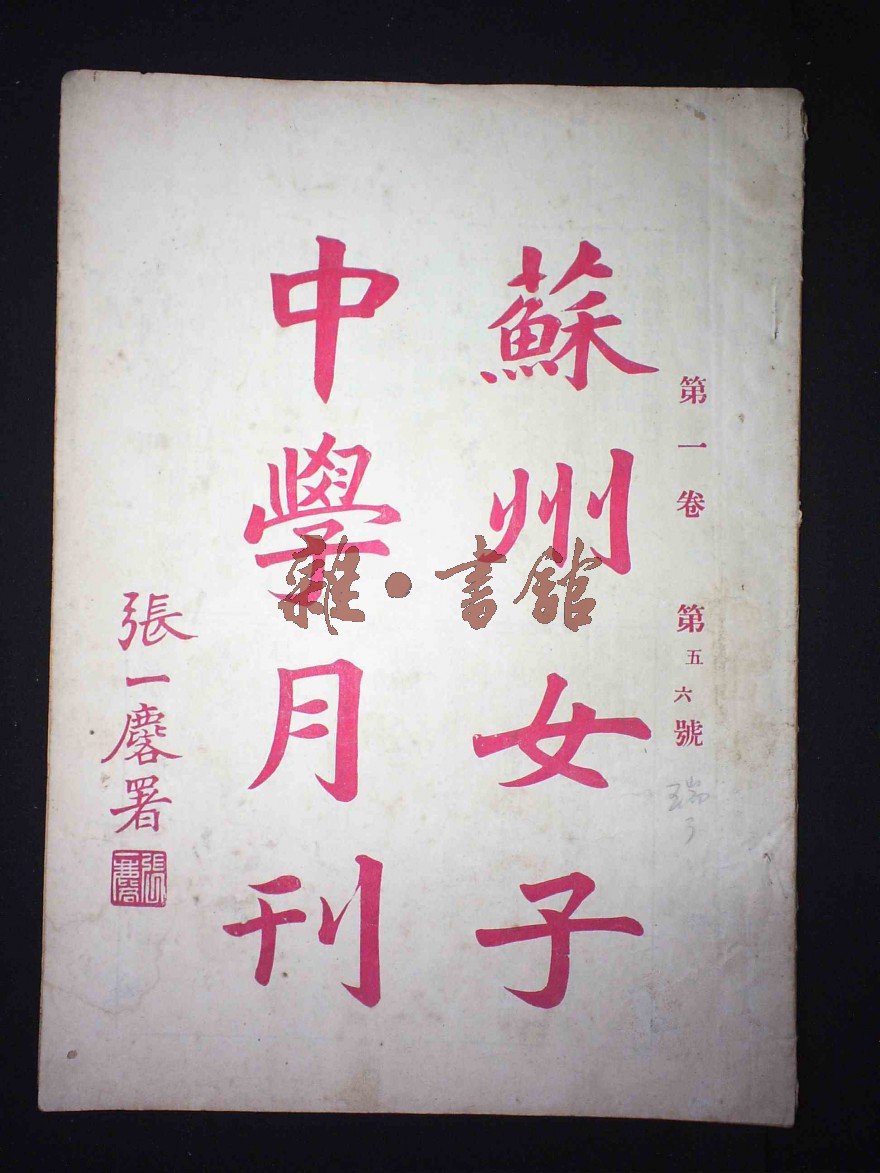 第一卷 第五六號
蘇州女子
中學月刊
張一麐署
張一麐
雜·書館